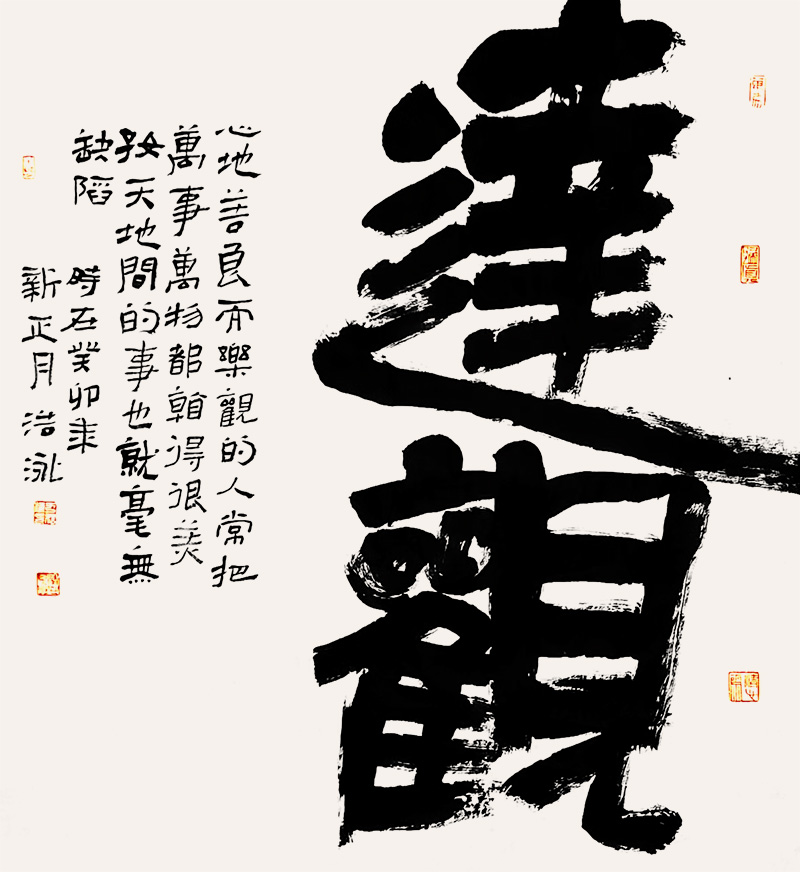 達觀
心地善良而樂觀的人常把
萬事萬物都看得很美
好天地間的事也就毫無
缺陷
時在癸卯年
新正月浩泳